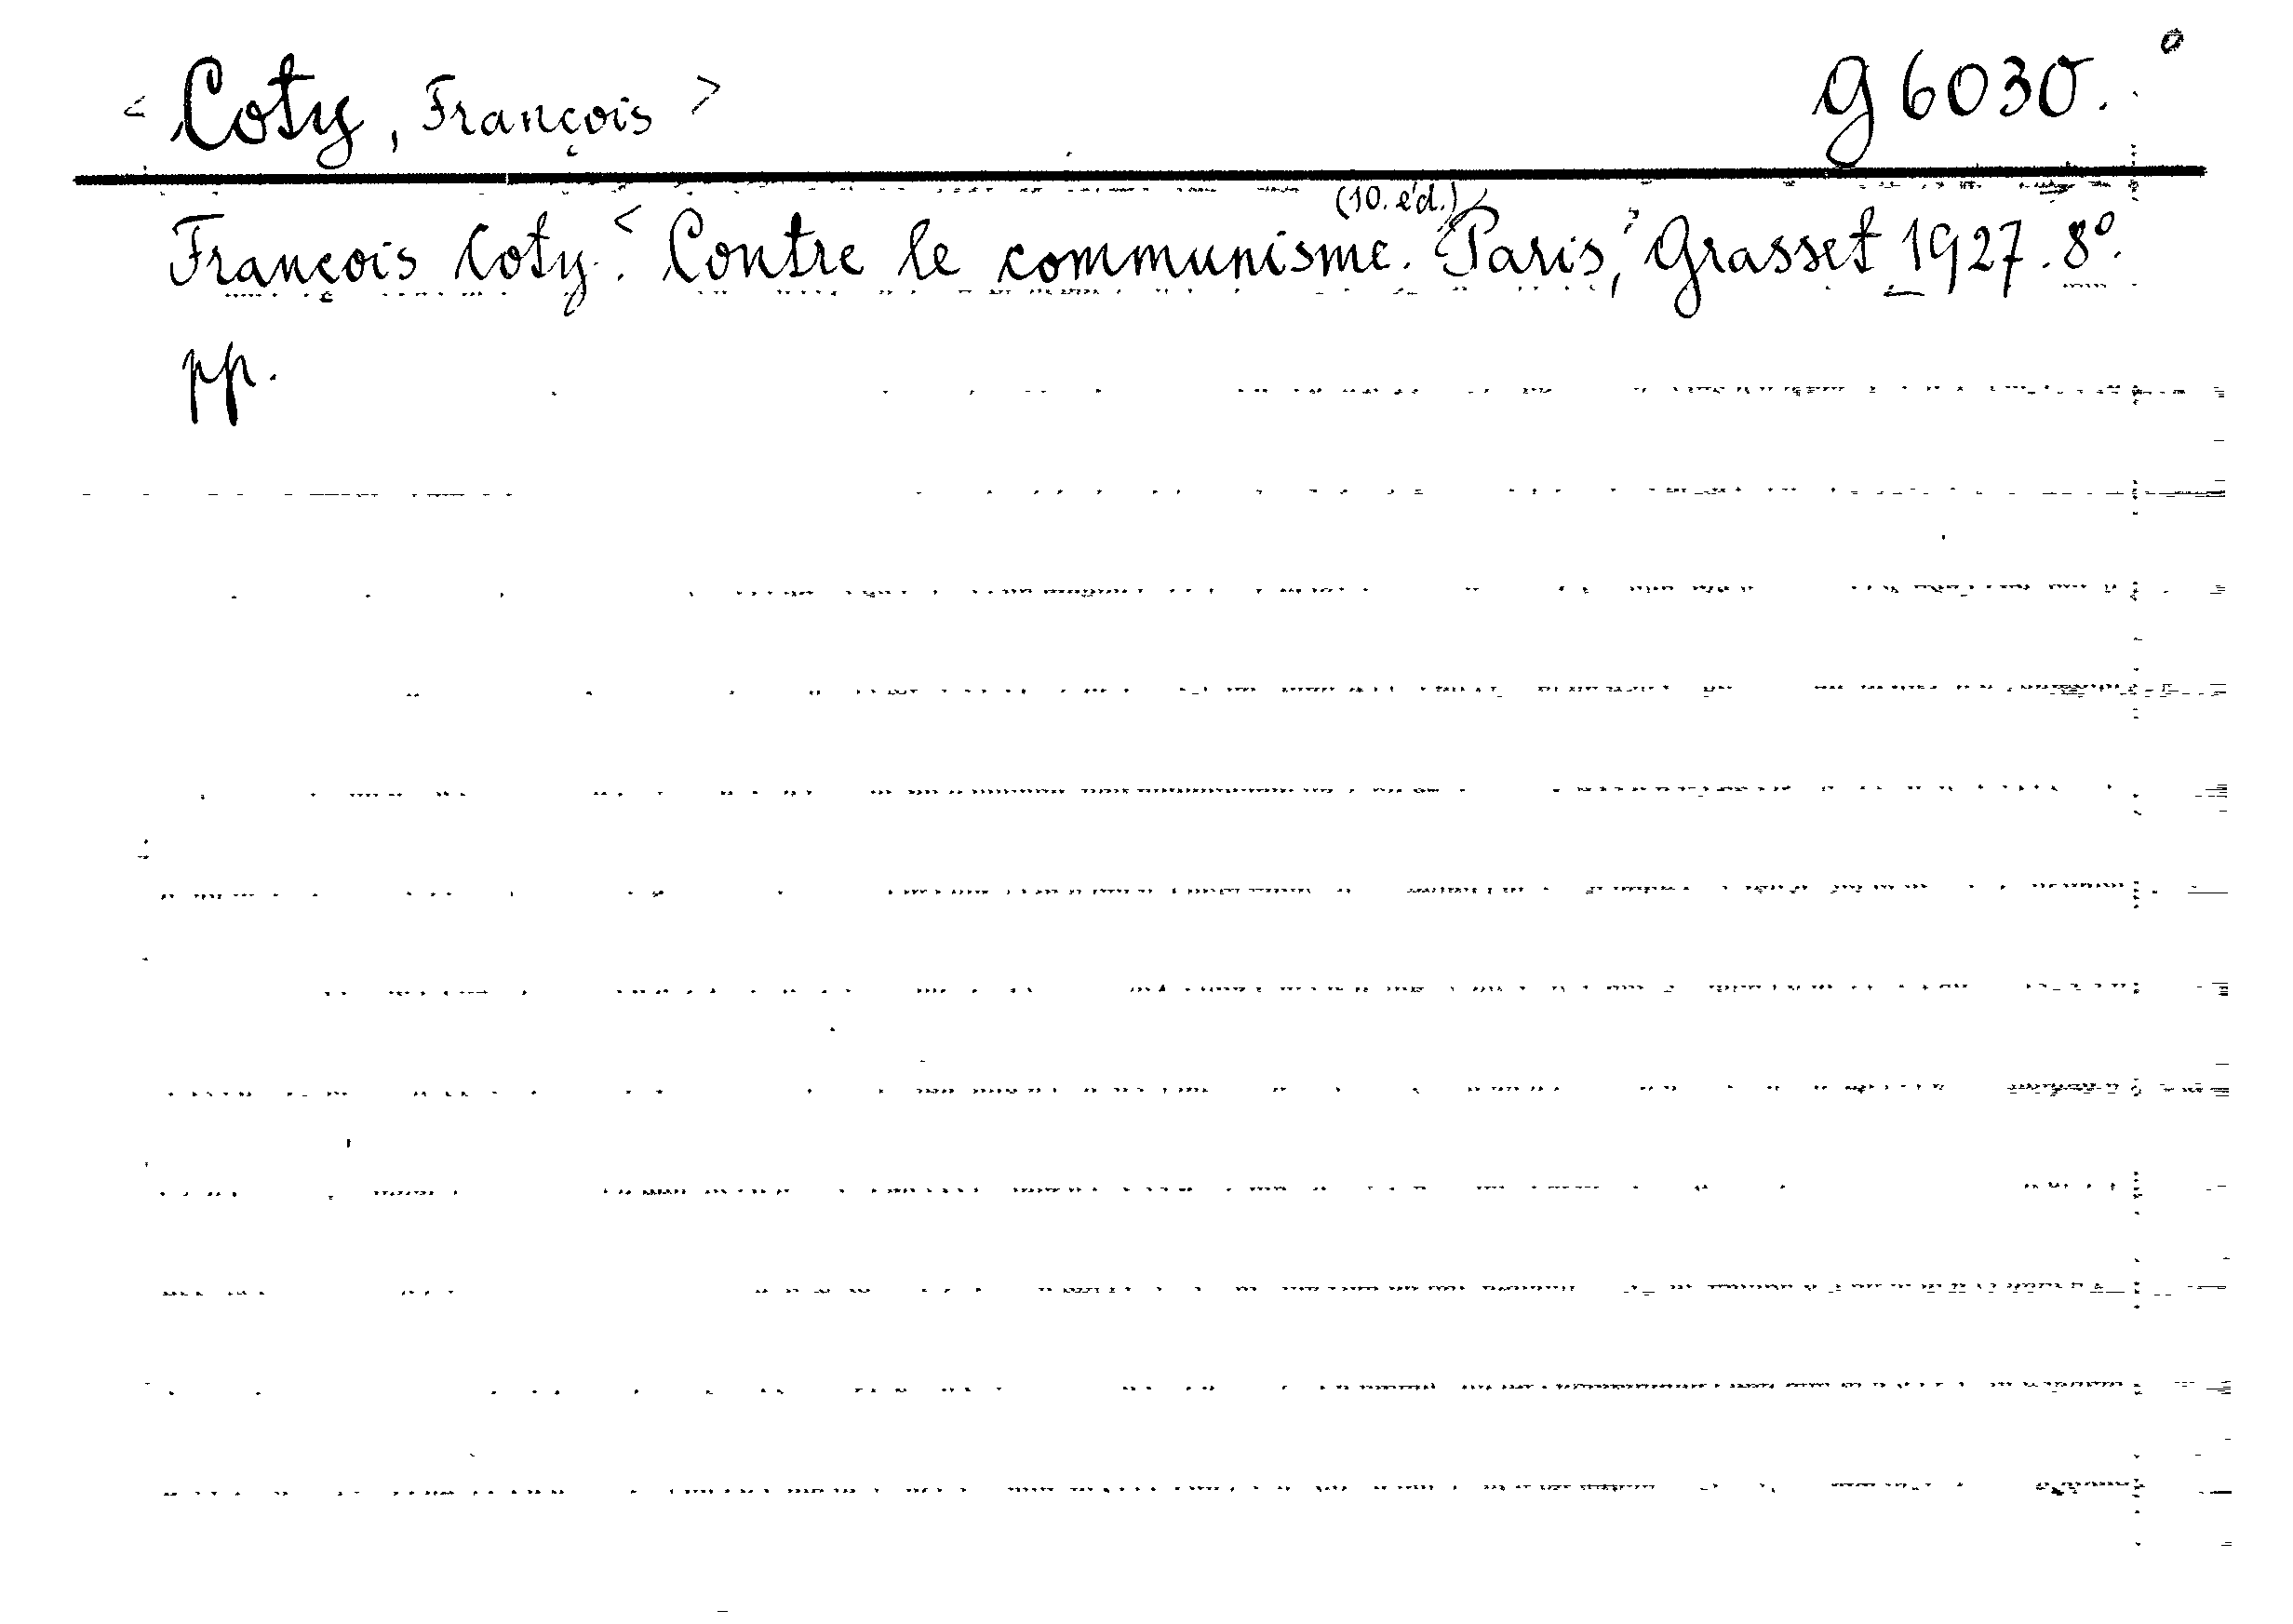 < Coty, François > g 6030.
(10. éd.)
François Coty. < Contre le communisme. Paris, > Grasset 1927. 8º.
pp.